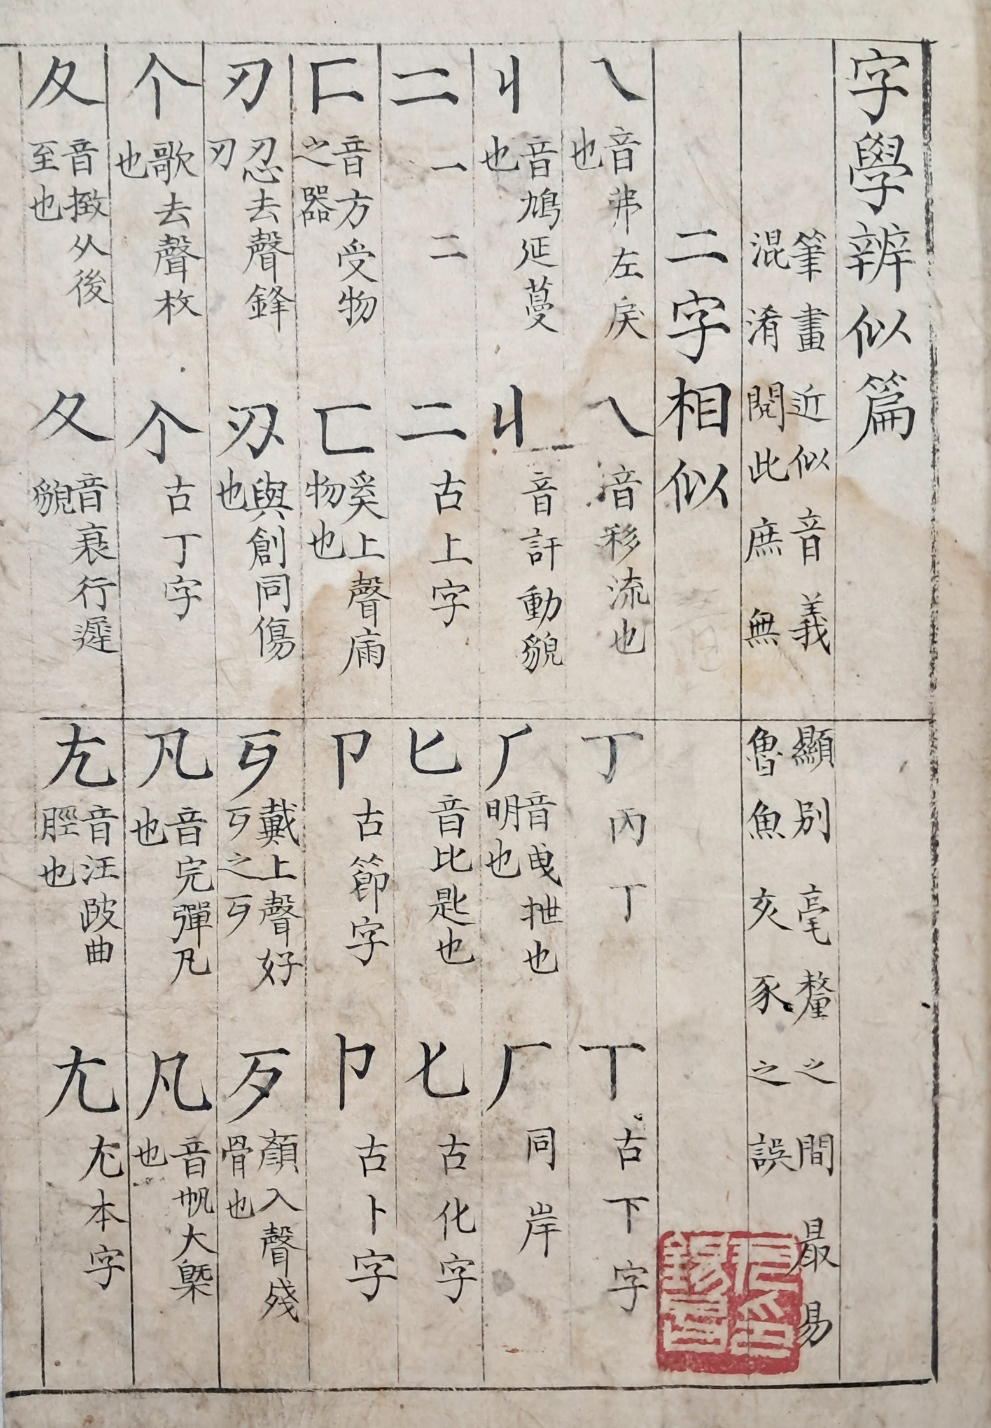 字學辨似篇
筆畫近似音義顯別毫釐之間最易
混淆閱此庶無魯魚亥豕之誤
二字相似
乀 音弗左戾也
乁 音移流也
丁 丙丁
丅 古下字
丩 音鳩延蔓也
音訐動貌
𠂆 音曳抴也明也
厂 同岸
二 一二
二 古上字
匕 音比匙也
𠤎 古化字
匚 音方受物之器
匸 奚上聲廂物也
卩 古節字
卜 古卜字
刃 忍去聲鋒刃
刅 與創同傷也
丂 戴上聲好丂之丂
歹 顏入聲殘骨也
个 歌去聲枚也
个 古丁字
凡 音完彈凡也
凡 音帆大槩也
夂 音撴从後至也
夊 音衰行遲貌
尢 音汪跛曲脛也
尢 尤本字